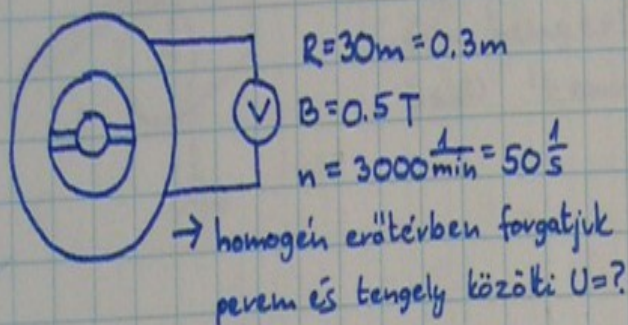 R=30m=0.3m
V
B=0.5T
n=3000 1/min=50 1/s
→ homogén erőtérben forgatjuk
perem és tengely közötti U=?